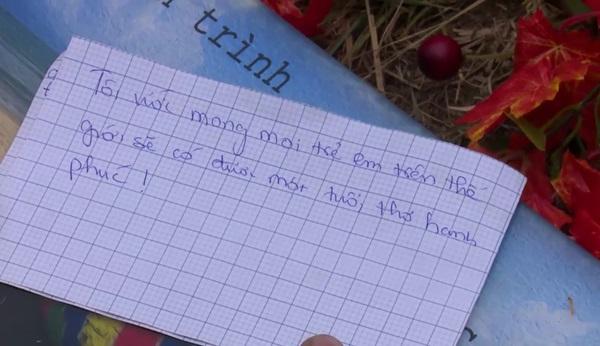 trình
Tôi ước mong mọi trẻ em trên thế
giới sẽ có được một tuổi thơ hạnh
phúc!